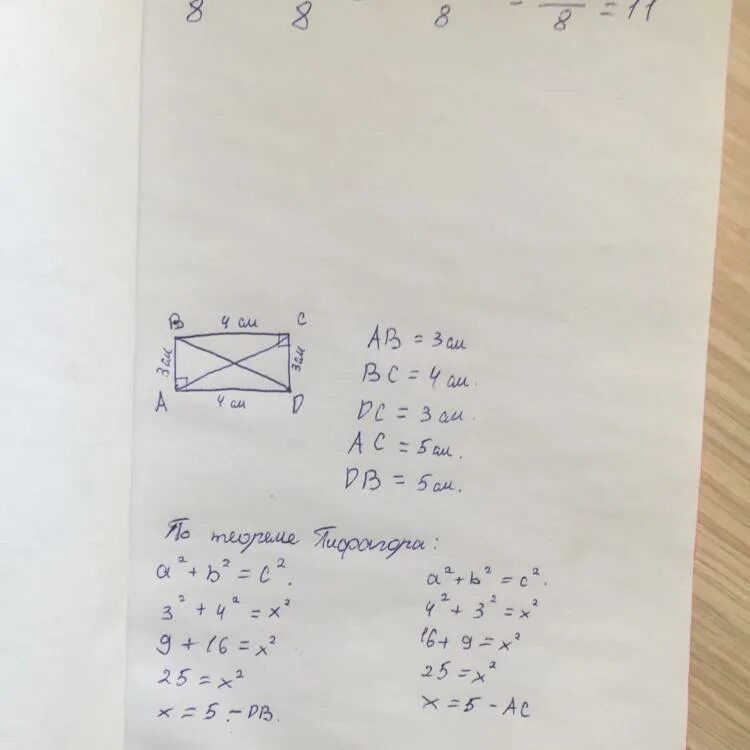 8 8 8 - 8 = 11
B 4 см C
3 см 3 см
A 4 см D
AB = 3 см
BC = 4 см.
DC = 3 см.
AC = 5 см.
DB = 5 см.
По теореме Пифагора:
a² + b² = c².
3² + 4² = x²
9 + 16 = x²
25 = x²
x = 5 - DB.
a² + b² = c².
4² + 3² = x²
16 + 9 = x²
25 = x²
x = 5 - AC